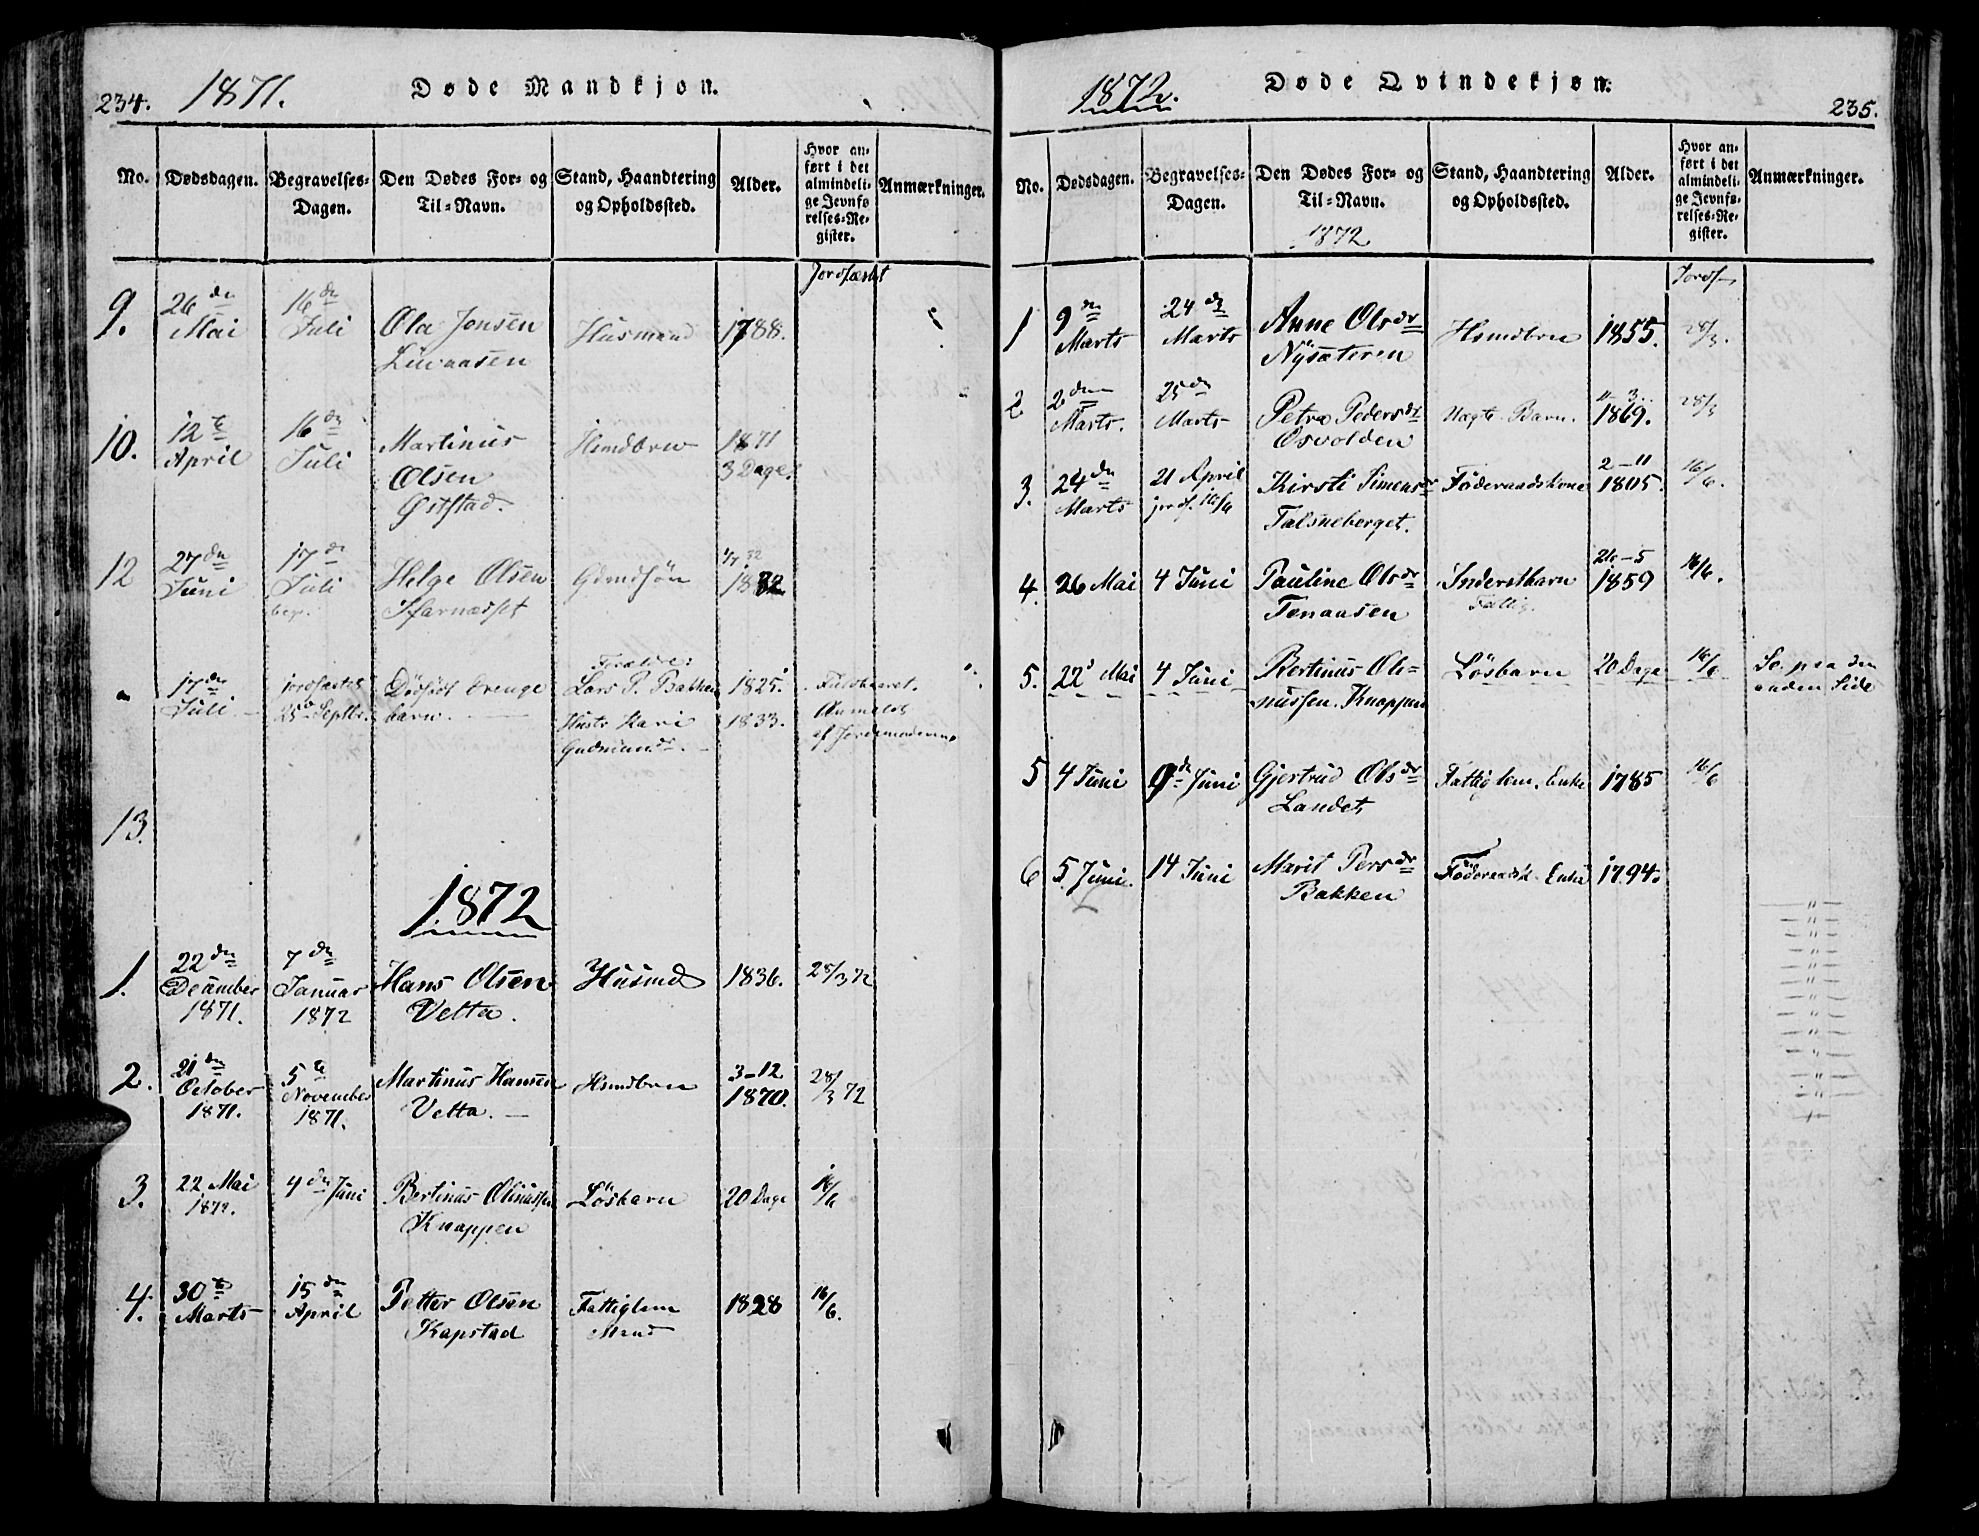 234. 1871. Døde Mandkjøn.
No. Dødsdagen. Begravelses-Dagen. Den Dødes For- og Til-Navn. Stand, Haandtering og Opholdssted. Alder. Hvor anført i det almindelige Jevnførelses-Register. Anmærkninger.
Jordfæstet
9. 26de Mai 16de Juli Ola Jensen Husmand 1788.
10. 12te April 16de Juli Martinus Olsen Øststad. Hsmdbrn 1871 3 Dage.
12 27de Juni 17de Juli begr. Helge Olsen Gdmdsøn
17de Juli jordfæstet 25 Septbr. Dödfödt Drenge barn. Forældre: Lars P. Bakken 1825. Fuldbaaret.
Husts Kari Gudmundsdr. 1833. Anmeldt af Jordemoderen.
13.
1872
1. 22de December 1871. 7de Januar 1872 Hans Olsen Vetta. Husmd 1836. 28/3 72
2. 21de October 1871. 5te November 1871. Martinus Hansen Vetta. Hsmdbrn 3-12 1870. 28/3 72
3. 22 Mai 1872. 4de Juni Bertinus Olinussen Knappen Løsbarn 20 Dage 16/6
4. 30te Marts 15de April Petter Olsen Kapstad Fattiglem 1828 16/6.
1872. Døde Qvindekjøn. 235.
No. Dødsdagen. Begravelses-Dagen. Den Dødes For- og Til-Navn. Stand, Haandtering og Opholdssted. Alder. Hvor anført i det almindelige Jevnførelses-Register. Anmærkninger.
1872
Jordf.
1 9de Marts 24de Marts Anne Olsdr Nysæteren Hsmdbrn 1855. 28/3.
2 2den Marts. 25de Marts Petra Pedersdr Osvolden Barn. 1869. 28/3
3. 24de Marts 21 April jordf. 16/6 Kirsti Simensdr Talsneberget. Föderaadskone 2-11 1805. 16/6.
4. 26 Mai 4 Juni Pauline Olsdr Tenaasen Inderstbarn Fattig. 26-5 1859 16/6.
5. 22 Mai 4 Juni Bertinus Olinussen Knappen Løsbarn 20 Dage 16/6 Se paa den anden Side
5 4 Juni 9de Juni Gjertrud Olsdr Landet Fattiglem, Enke 1785 16/6
6 5 Juni. 14 Juni Marit Persdr Bakken Föderaadsk. Enke 1794.